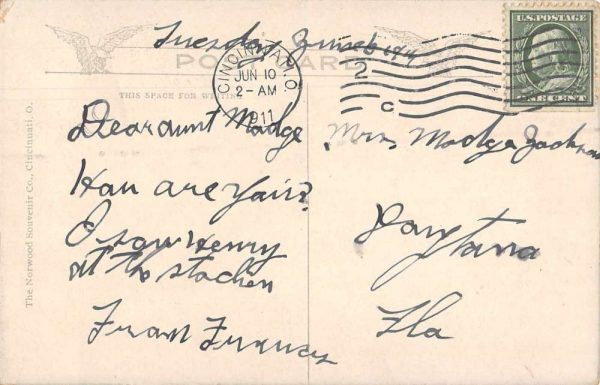 Tuesday June 6 1911
POST CARD
CINCINNATI, O.
JUN 10
2-AM
1911
2
C
U.S. POSTAGE
ONE CENT
THIS SPACE FOR WRITING
Dear aunt Madge
Hau are yair?
I saw Henry
at the stachen
From Frances
Mrs. Madge Jackson
Daytana
Fla
The Norwood Souvenir Co., Cincinnati, O.